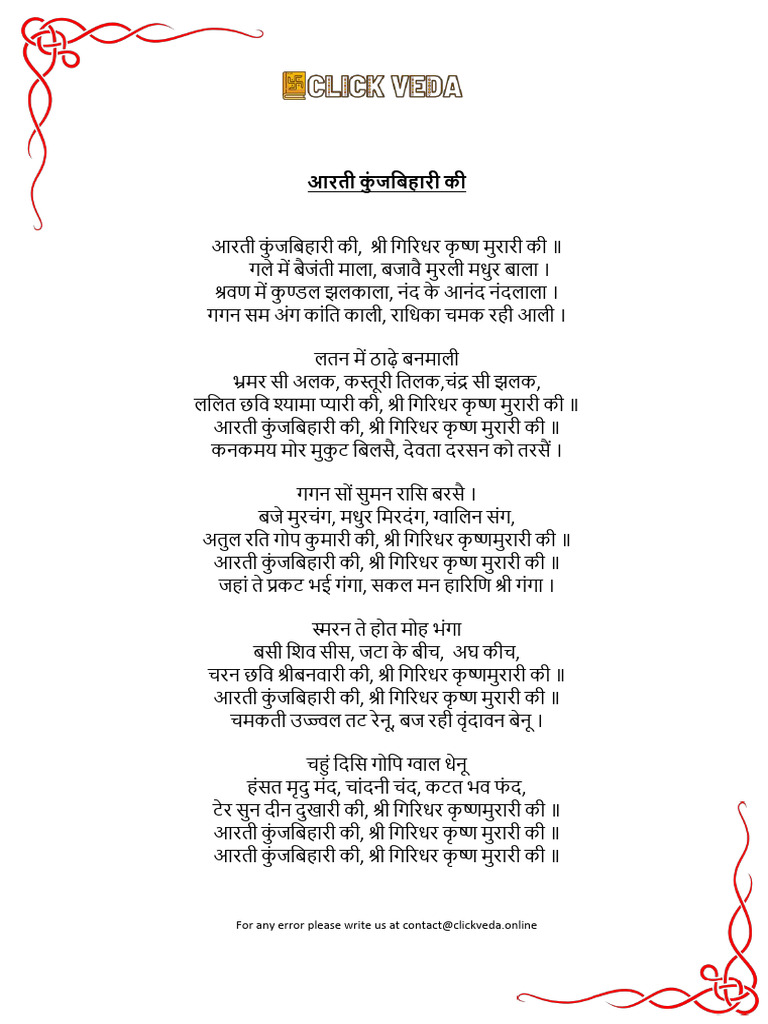 CLICK VEDA
आरती कुंजबिहारी की
आरती कुंजबिहारी की, श्री गिरिधर कृष्ण मुरारी की ॥
गले में बैजंती माला, बजावै मुरली मधुर बाला ।
श्रवण में कुण्डल झलकाला, नंद के आनंद नंदलाला ।
गगन सम अंग कांति काली, राधिका चमक रही आली ।
लतन में ठाढ़े बनमाली
भ्रमर सी अलक, कस्तूरी तिलक,चंद्र सी झलक,
ललित छवि श्यामा प्यारी की, श्री गिरिधर कृष्ण मुरारी की ॥
आरती कुंजबिहारी की, श्री गिरिधर कृष्ण मुरारी की ॥
कनकमय मोर मुकुट बिलसै, देवता दरसन को तरसैं ।
गगन सों सुमन रासि बरसै ।
बजे मुरचंग, मधुर मिरदंग, ग्वालिन संग,
अतुल रति गोप कुमारी की, श्री गिरिधर कृष्णमुरारी की ॥
आरती कुंजबिहारी की, श्री गिरिधर कृष्ण मुरारी की ॥
जहां ते प्रकट भई गंगा, सकल मन हारिणि श्री गंगा ।
स्मरन ते होत मोह भंगा
बसी शिव सीस, जटा के बीच, अघ कीच,
चरन छवि श्रीबनवारी की, श्री गिरिधर कृष्णमुरारी की ॥
आरती कुंजबिहारी की, श्री गिरिधर कृष्ण मुरारी की ॥
चमकती उज्ज्वल तट रेनू, बज रही वृंदावन बेनू ।
चहुं दिसि गोपि ग्वाल धेनू
हंसत मृदु मंद, चांदनी चंद, कटत भव फंद,
टेर सुन दीन दुखारी की, श्री गिरिधर कृष्णमुरारी की ॥
आरती कुंजबिहारी की, श्री गिरिधर कृष्ण मुरारी की ॥
आरती कुंजबिहारी की, श्री गिरिधर कृष्ण मुरारी की ॥
For any error please write us at contact@clickveda.online